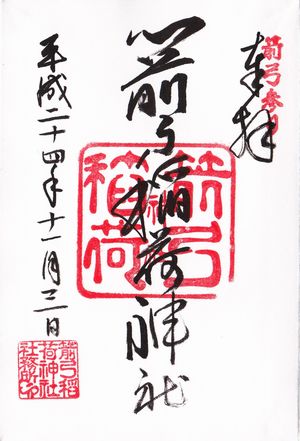 箭弓参
奉拝
箭弓稲荷神社
箭弓
稲荷
平成二十四年十一月三日
箭弓稲
荷神社
社務所印